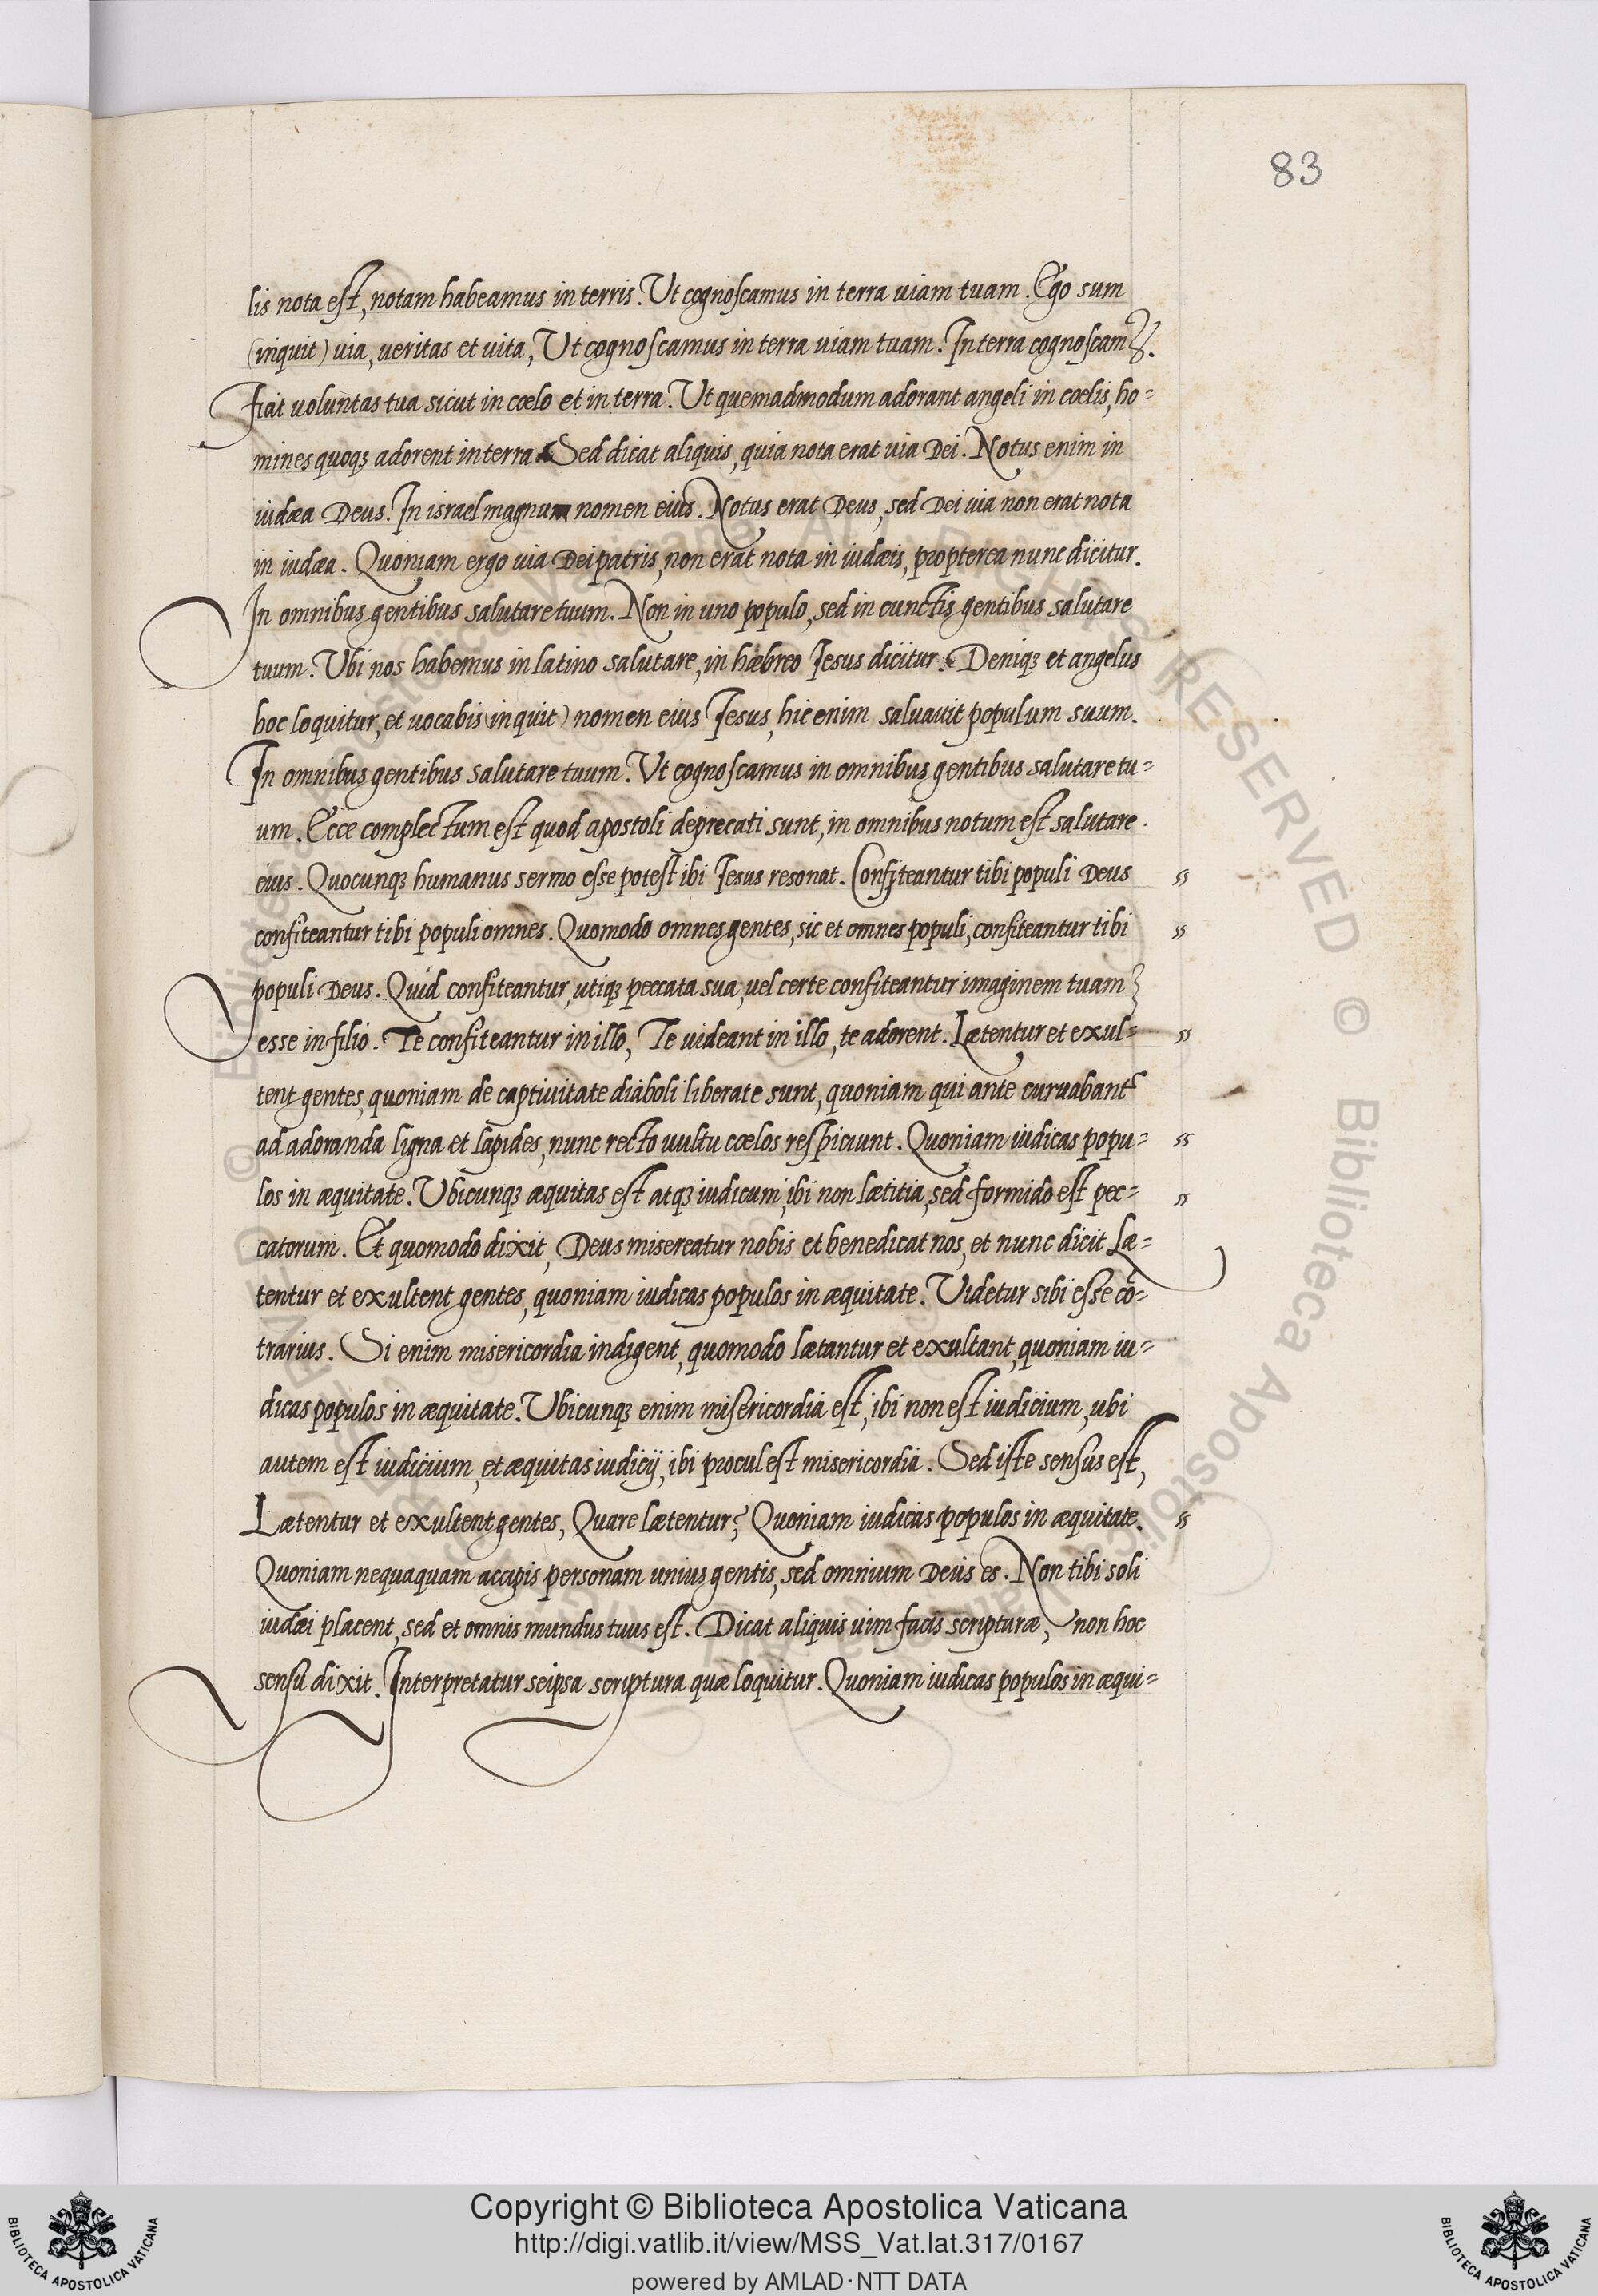 83
lis nota est, notam habeamus in terris. Ut cognoscamus in terra uiam tuam. Ego sum
(inquit) uia, ueritas et uita, Ut cognoscamus in terra uiam tuam. In terra cognoscamꝰ.
Fiat uoluntas tua sicut in cœlo et in terra. Ut quemadmodum adorant angeli in cœlis, ho=
mines quoqꝫ adorent in terra. Sed dicat aliquis, quia nota erat uia Dei. Notus enim in
iudæa Deus. In israel magnum nomen eius. Notus erat Deus, sed Dei uia non erat nota
in iudæa. Quoniam ergo uia Dei patris, non erat nota in iudæis, propterea nunc dicitur.
In omnibus gentibus salutare tuum. Non in uno populo, sed in cunctis gentibus salutare
tuum. Ubi nos habemus in latino salutare, in hæbreo Iesus dicitur. Deniqꝫ et angelus
hoc loquitur, et uocabis (inquit) nomen eius Iesus, hic enim saluauit populum suum.
In omnibus gentibus salutare tuum. Ut cognoscamus in omnibus gentibus salutare tu=
um. Ecce complectum est quod apostoli deprecati sunt, in omnibus notum est salutare
eius. Quocunqꝫ humanus sermo esse potest ibi Iesus resonat. Confiteantur tibi populi Deus »
confiteantur tibi populi omnes. Quomodo omnes gentes, sic et omnes populi, confiteantur tibi »
populi Deus. Quid confiteantur, utiqꝫ peccata sua, uel certe confiteantur imaginem tuam
esse in filio. Te confiteantur in illo, Te uideant in illo, te adorent. Lætentur et exul= »
tent gentes, quoniam de captiuitate diaboli liberate sunt, quoniam qui ante curuabant᷑
ad adoranda ligna et lapides, nunc recto uultu cœlos respiciunt. Quoniam iudicas popu= »
los in æquitate. Ubicunqꝫ æquitas est atqꝫ iudicum, ibi non lætitia, sed formido est pec= »
catorum. Et quomodo dixit, Deus misereatur nobis et benedicat nos, et nunc dicit Læ=
tentur et exultent gentes, quoniam iudicas populos in æquitate. Uidetur sibi esse cō=
trarius. Si enim misericordia indigent, quomodo lætantur et exultant, quoniam iu=
dicas populos in æquitate. Ubicunqꝫ enim misericordia est, ibi non est iudicium, ubi
autem est iudicium, et æquitas iudicij, ibi procul est misericordia. Sed iste sensus est,
Lætentur et exultent gentes, Quare lætentur? Quoniam iudicas populos in æquitate. »
Quoniam nequaquam accipis personam unius gentis, sed omnium Deus es. Non tibi soli
iudæi placent, sed et omnis mundus tuus est. Dicat aliquis uim facis scripturæ, non hoc
sensu dixit. Interpretatur seipsa scriptura quæ loquitur. Quoniam iudicas populos in æqui=
Copyright © Biblioteca Apostolica Vaticana
http://digi.vatlib.it/view/MSS_Vat.lat.317/0167
powered by AMLAD·NTT DATA
BIBLIOTECA APOSTOLICA VATICANA
BIBLIOTECA APOSTOLICA VATICANA